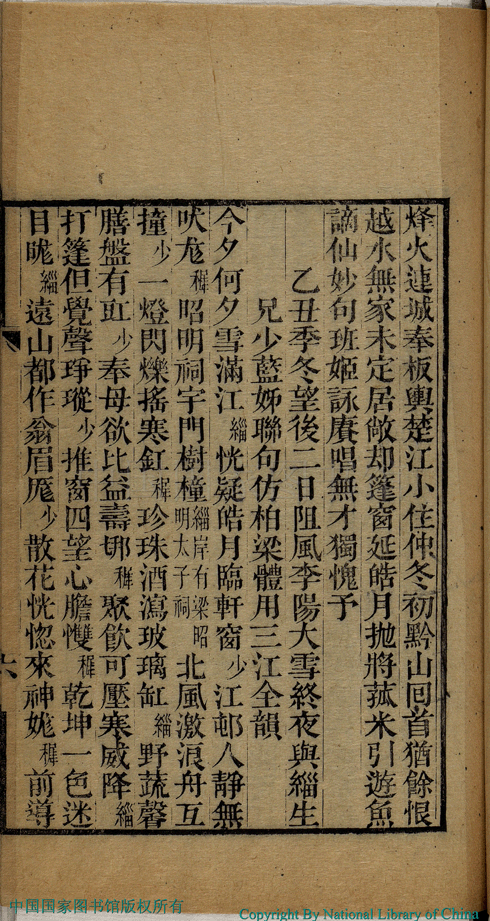 烽火連城奉板輿楚江小住仲冬初黔山回首猶餘恨
越水無家未定居敞却篷窗延皓月拋將菰米引遊魚
謫仙妙句班姬詠賡唱無才獨愧予
乙丑季冬望後二日阻風李陽大雪終夜與緇生
兄少藍姊聯句仿柏梁體用三江全韻
今夕何夕雪滿江緇恍疑皓月臨軒窗少江邨人靜無
吠尨穉昭明祠宇門樹橦緇岸有梁昭明太子祠北風激浪舟互
撞少一燈閃爍搖寒釭穉珍珠酒瀉玻璃缸緇野蔬馨
膳盤有豇少奉母欲比益壽㧍穉聚飲可壓寒威降緇
打篷但覺聲琤瑽少推窗四望心膽䉶穉乾坤一色迷
目眬緇遠山都作翁眉厖少散花恍惚來神娏穉前導
六
中国国家图书馆版权所有
Copyright By National Library of China